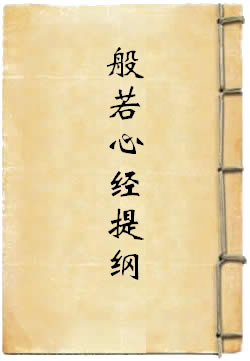 般若心经提纲